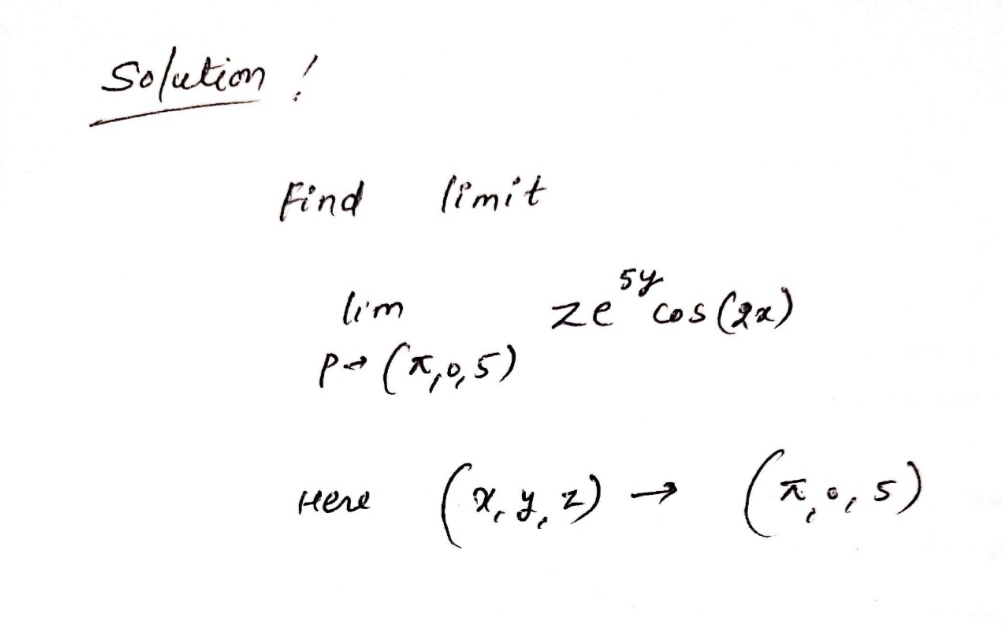 Solution !
Find limit
lim ze^5y cos(2x)
P→(π,0,5)
Here (x,y,z) → (π,0,5)